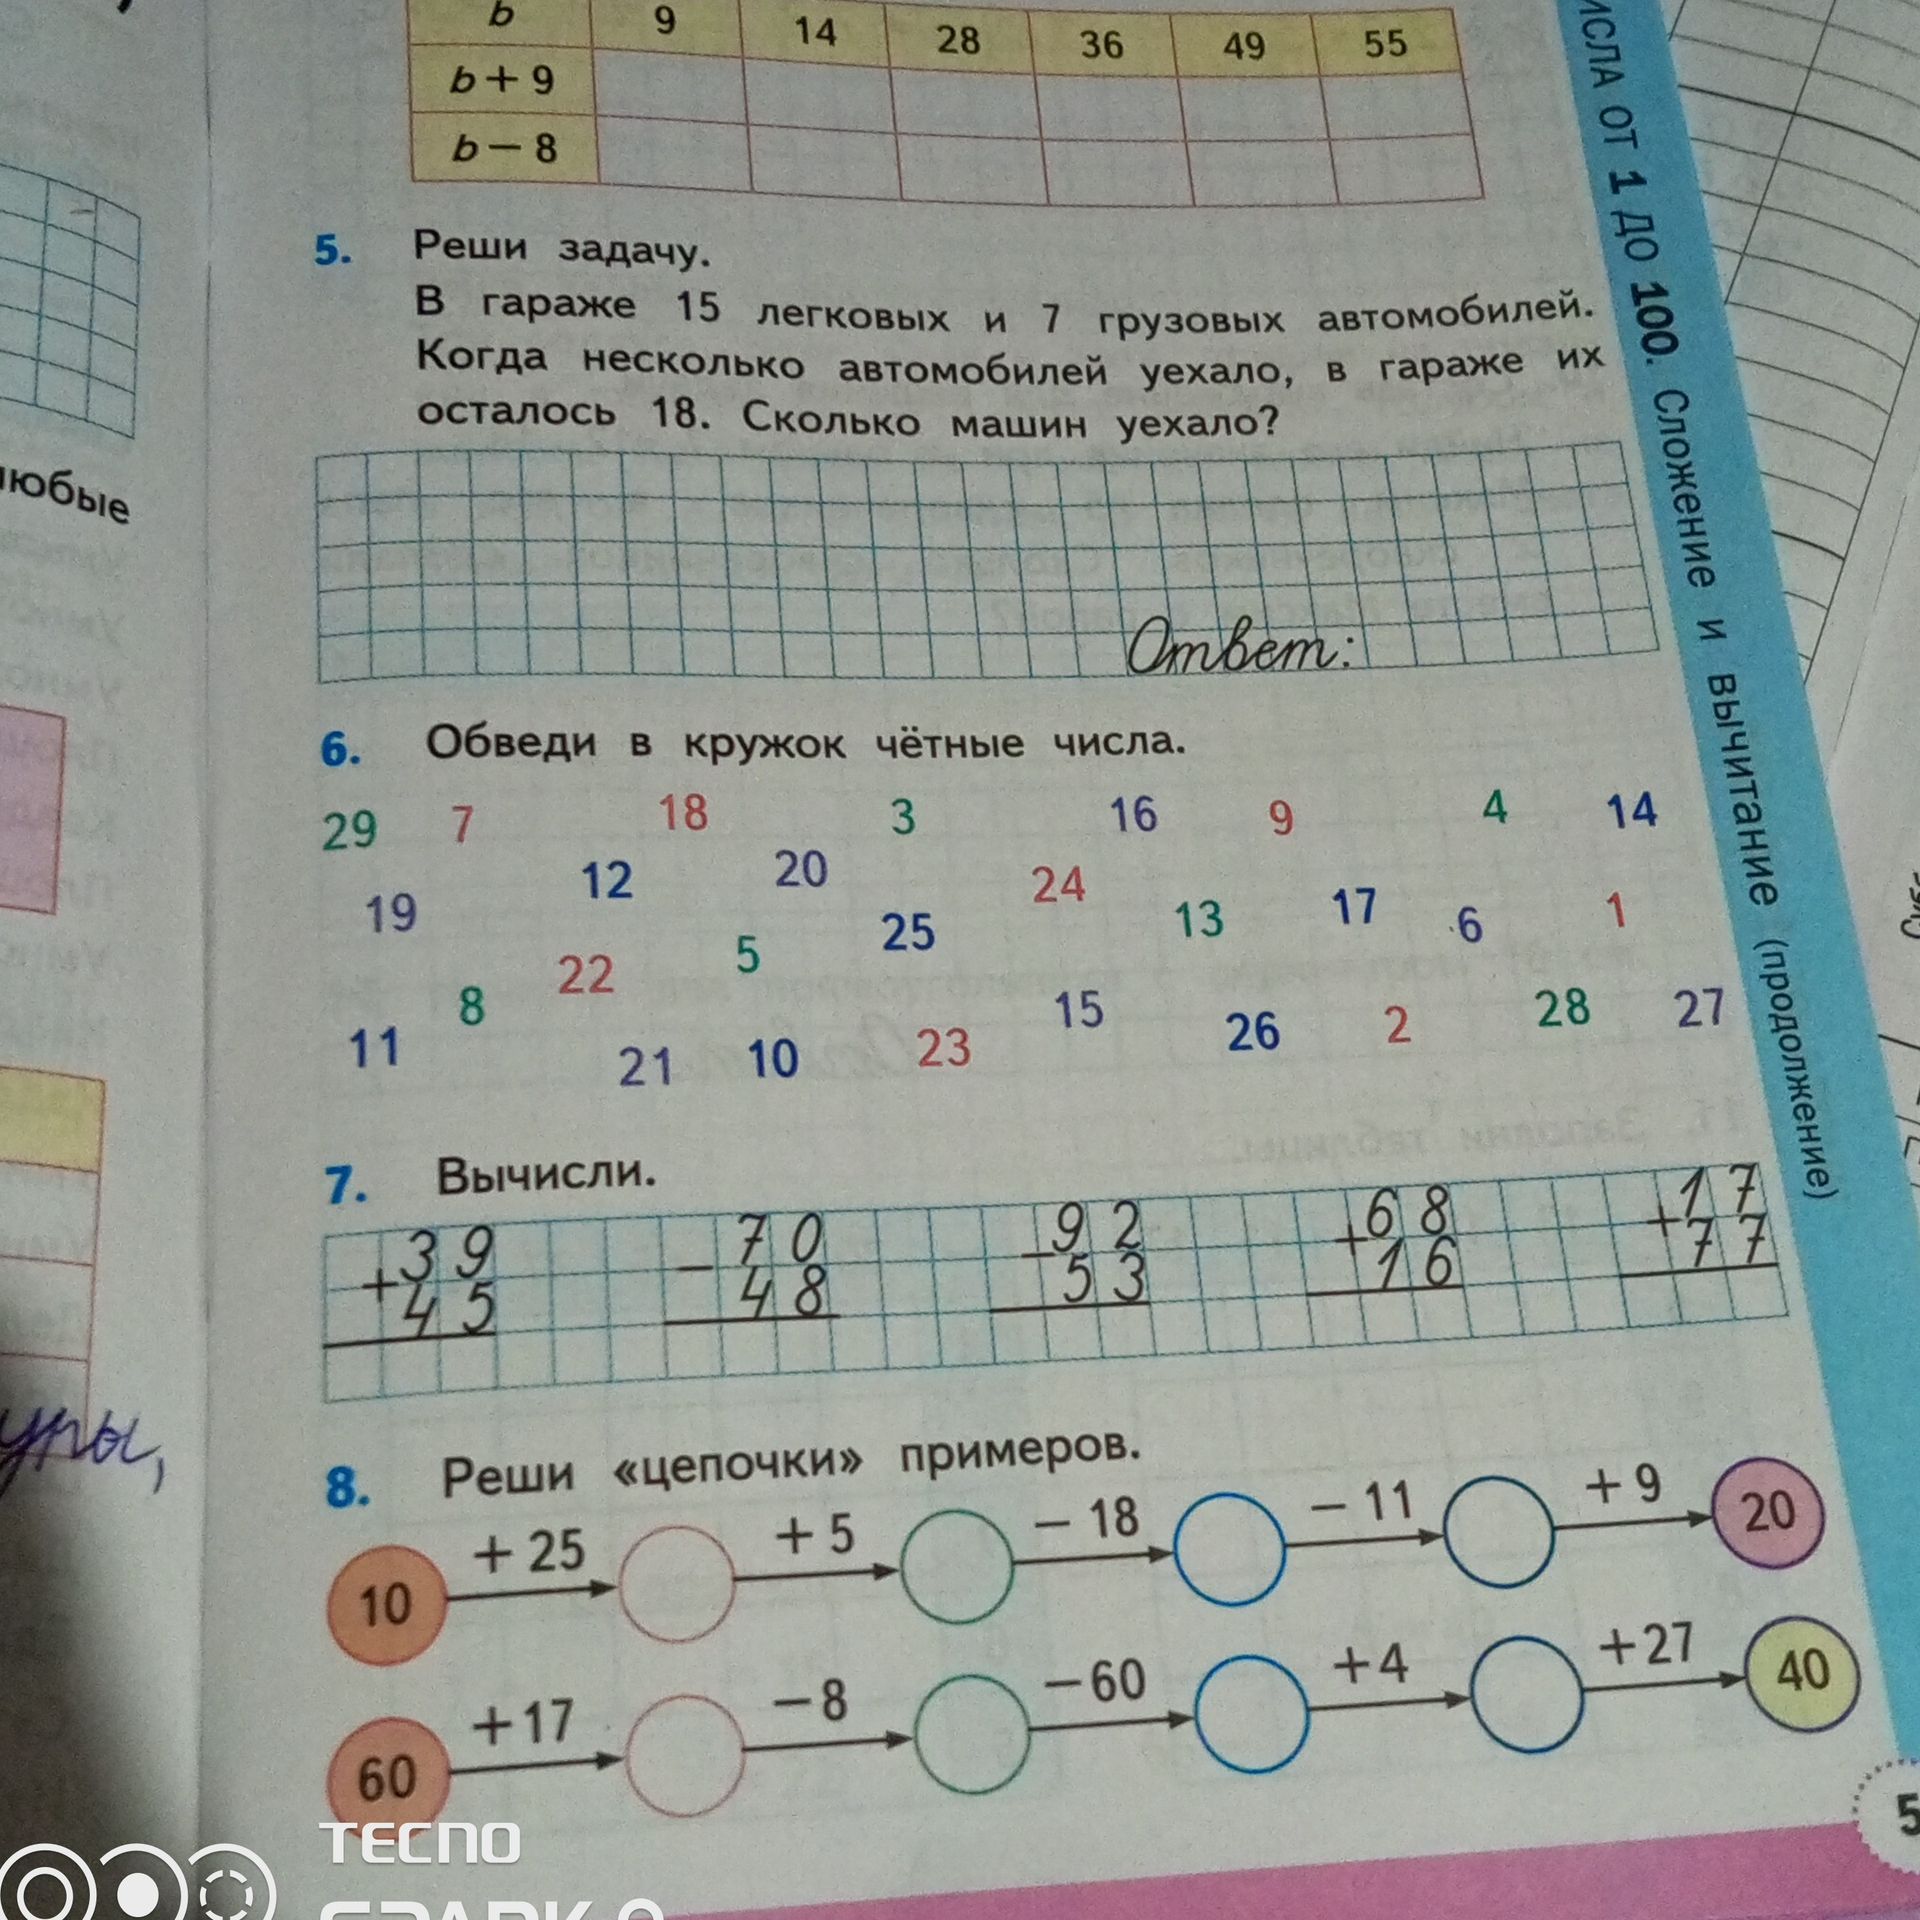 b 9 14 28 36 49 55
b + 9
b − 8
5. Реши задачу.
В гараже 15 легковых и 7 грузовых автомобилей.
Когда несколько автомобилей уехало, в гараже их
осталось 18. Сколько машин уехало?
Ответ:
6. Обведи в кружок чётные числа.
29 7 18 3 16 9 4 14
19 12 20 25 24 13 17 6 1
11 8 22 5 15 26 2 28 27
21 10 23
7. Вычисли.
39 70 92 68 17
+ − − + +
45 48 53 16 77
8. Реши «цепочки» примеров.
10 + 25 + 5 − 18 − 11 + 9 20
60 +17 −8 −60 +4 +27 40
5
от 1 до 100. Сложение и вычитание (продолжение)
TECNO